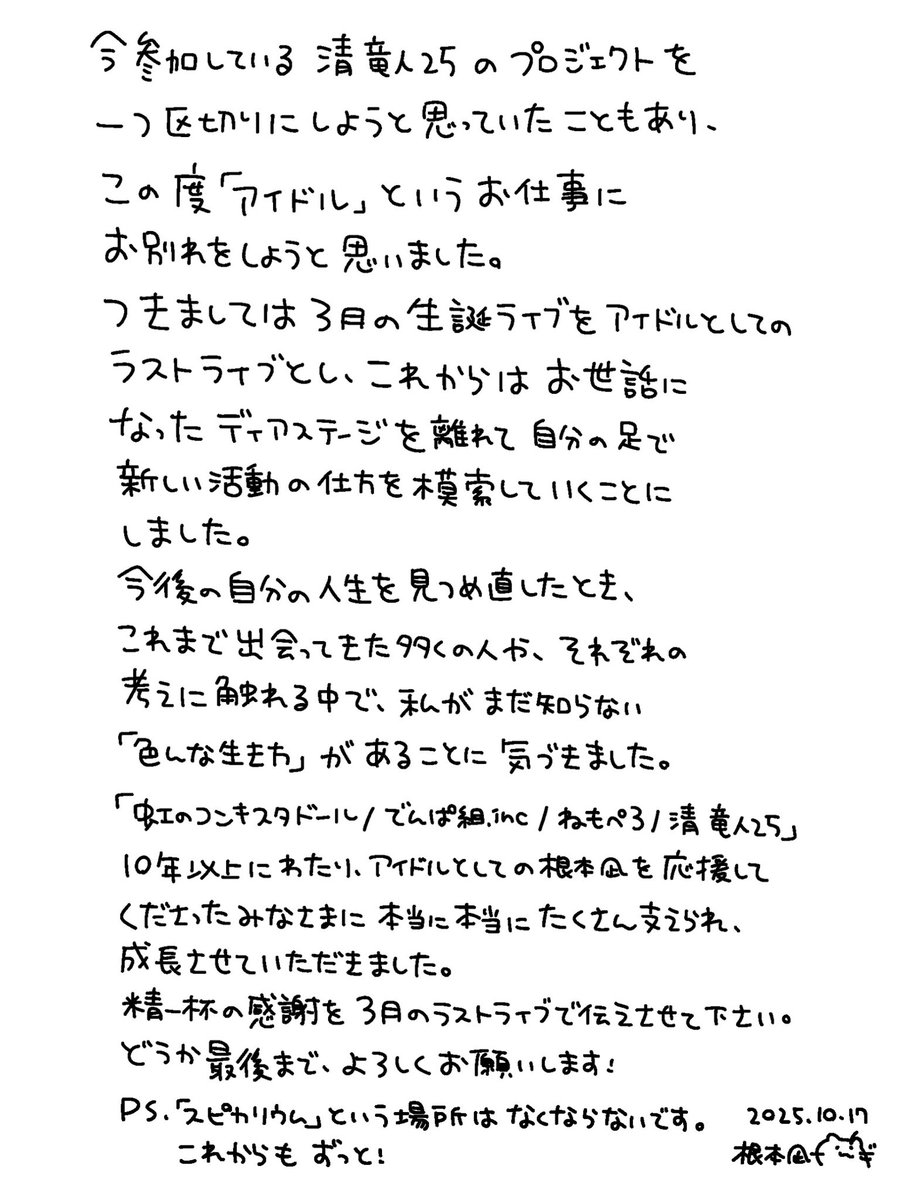 今参加している 清竜人25 の プロジェクトを
一つ区切りにしようと思っていたこともあり、
この度「アイドル」というお仕事に
お別れをしようと思いました。
つきましては3月の生誕ライブをアイドルとしての
ラストライブとし、これからはお世話に
なったディアステージを離れて自分の足で
新しい活動の仕方を模索していくことに
しました。
今後の自分の人生を見つめ直したとき、
これまで出会ってきた多くの人や、それぞれの
考えに触れる中で、私がまだ知らない
「色んな生き方」があることに気づきました。
「虹のコンキスタドール/でんぱ組.inc/ねもぺろ/清竜人25」
10年以上にわたり、アイドルとしての根本凪を応援して
くださったみなさまに本当に本当にたくさん支えられ、
成長させていただきました。
精一杯の感謝を3月のラストライブで伝えさせて下さい。
どうか最後まで、よろしくお願いします!
PS.「スピカリウム」という場所はなくならないです。 2025.10.17
これからもずっと! 根本凪